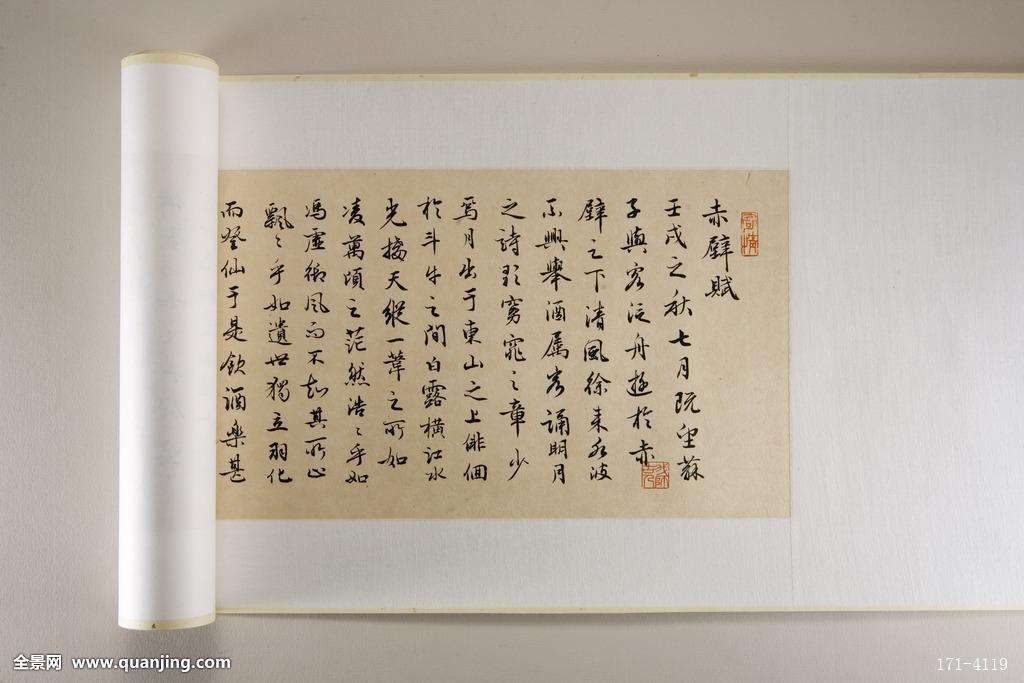 赤壁賦
壬戌之秋七月既望蘇
子與客泛舟遊於赤
壁之下清風徐来水波
不興舉酒屬客誦明月
之詩歌窈窕之章少
焉月出于東山之上徘徊
於斗牛之間白露橫江水
光接天縱一葦之所如
凌萬頃之茫然浩〻乎如
馮虛御風而不知其所止
飄〻乎如遺世獨立羽化
而登仙于是飲酒樂甚
全景网 www.quanjing.com
171-4119